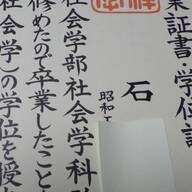 業証書・学位記
石
昭和
社会学部社会学科所
修めたので卒業したことを
社会学）の学位を授